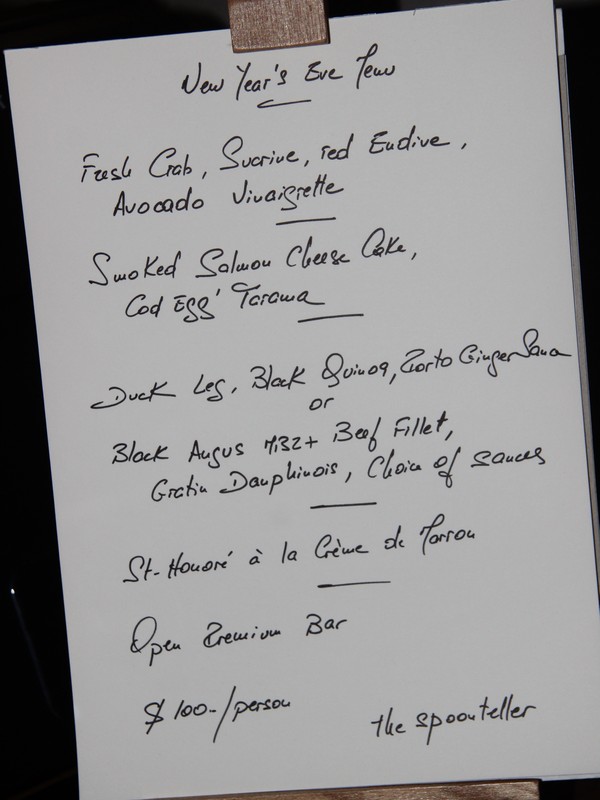 New Year's Eve Menu
Fresh Crab, Sucrine, red Endive,
Avocado Vinaigrette
Smoked Salmon Cheese Cake,
Cod Egg' Tarama
Duck Leg, Black Quinoa, Porto Ginger Sauce
or
Black Angus M32+ Beef Fillet,
Gratin Dauphinois, Choice of sauces
St-Honoré à la Crème de Marron
Open Premium Bar
$ 100-/person
the spoonteller